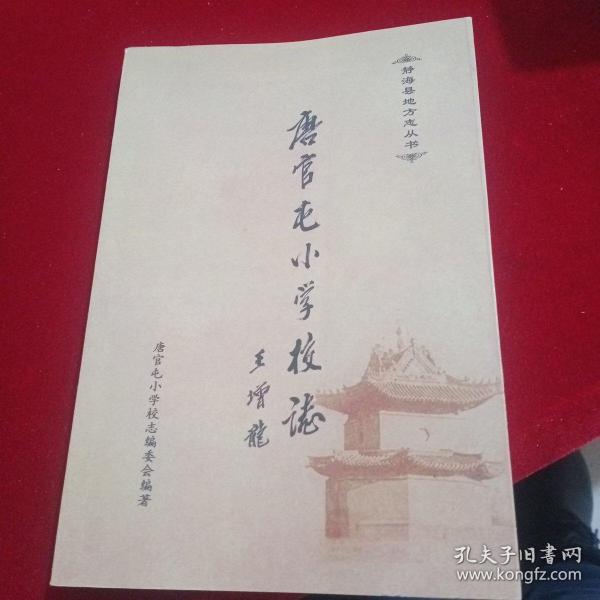 静海县地方志丛书
唐官屯小学校誌
王增龍
唐官屯小学校志编委会编著
孔夫子旧书网
www.kongfz.com